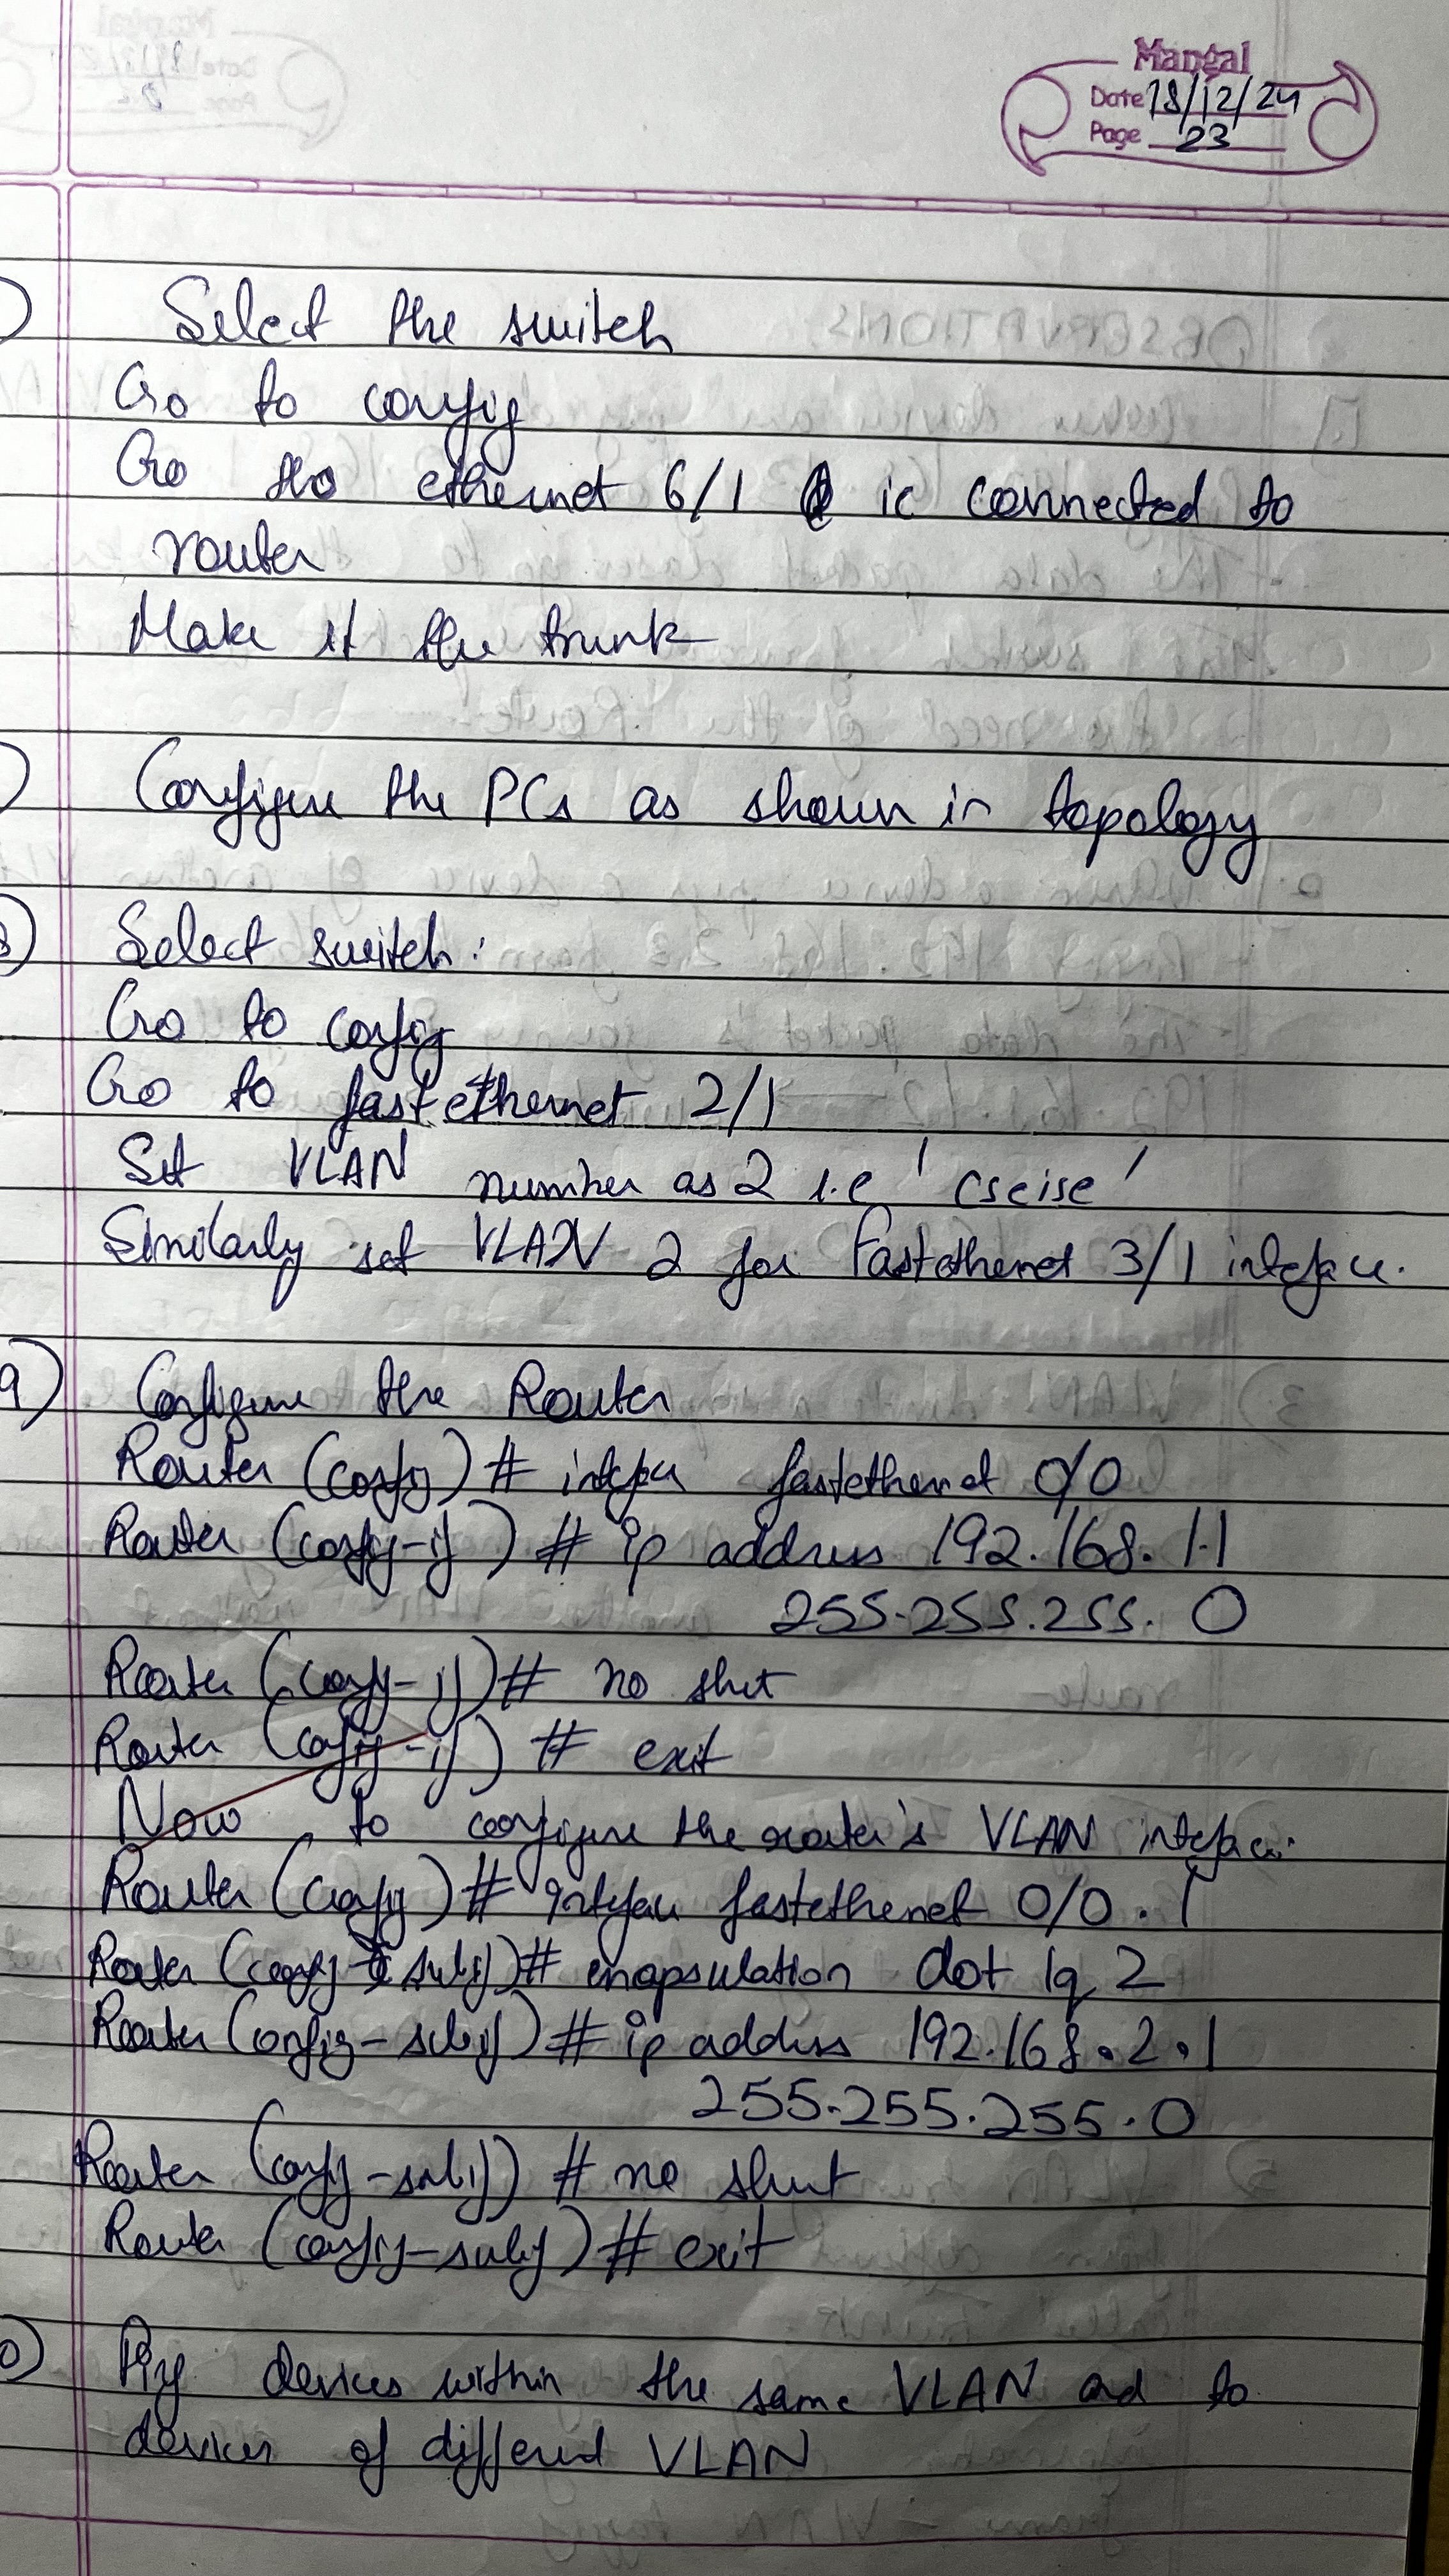 Mangal
Date 18/12/24
Page 23
) Select the switch
Go to config
Go to ethernet 6/1 ie connected to
router
Make it the trunk
) Configure the PCs as shown in topology
8) Select switch:
Go to config
Go to fastethernet 2/1
Set VLAN number as 2 i.e 'cseise'
Similarly set VLAN 2 for Fastethernet 3/1 interface.
9) Configure the Router
Router (config) # interface fastethernet 0/0
Router (config-if) # ip address 192.168.1.1
255.255.255.0
Router (config-if) # no shut
Router (config-if) # exit
Now to configure the router's VLAN interface.
Router (config) # interface fastethernet 0/0.1
Router (config-subif) # encapsulation dot 1q 2
Router (config-subif) # ip address 192.168.2.1
255.255.255.0
Router (config-subif) # no shut
Router (config-subif) # exit
0) Ping devices within the same VLAN and to
devices of different VLAN